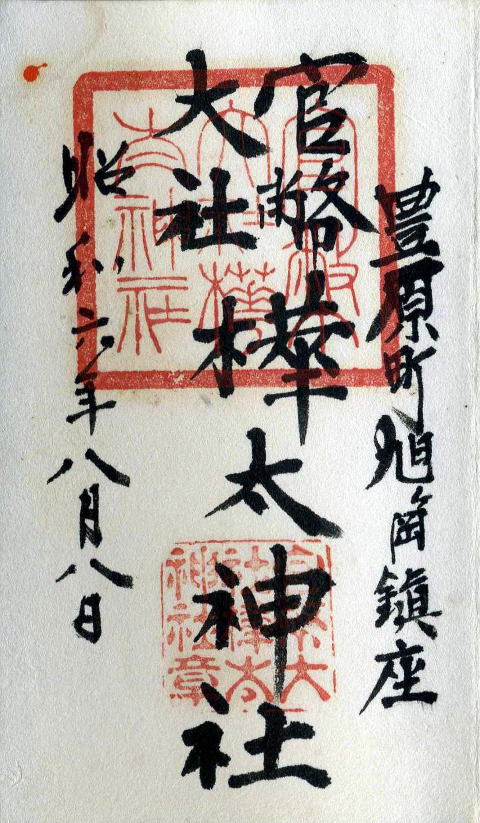 豊原町旭ヶ岡鎮座
官幣大社
樺太神社
昭和六年八月八日
官幣
大社樺
太神社
官幣大
社樺太
神社章